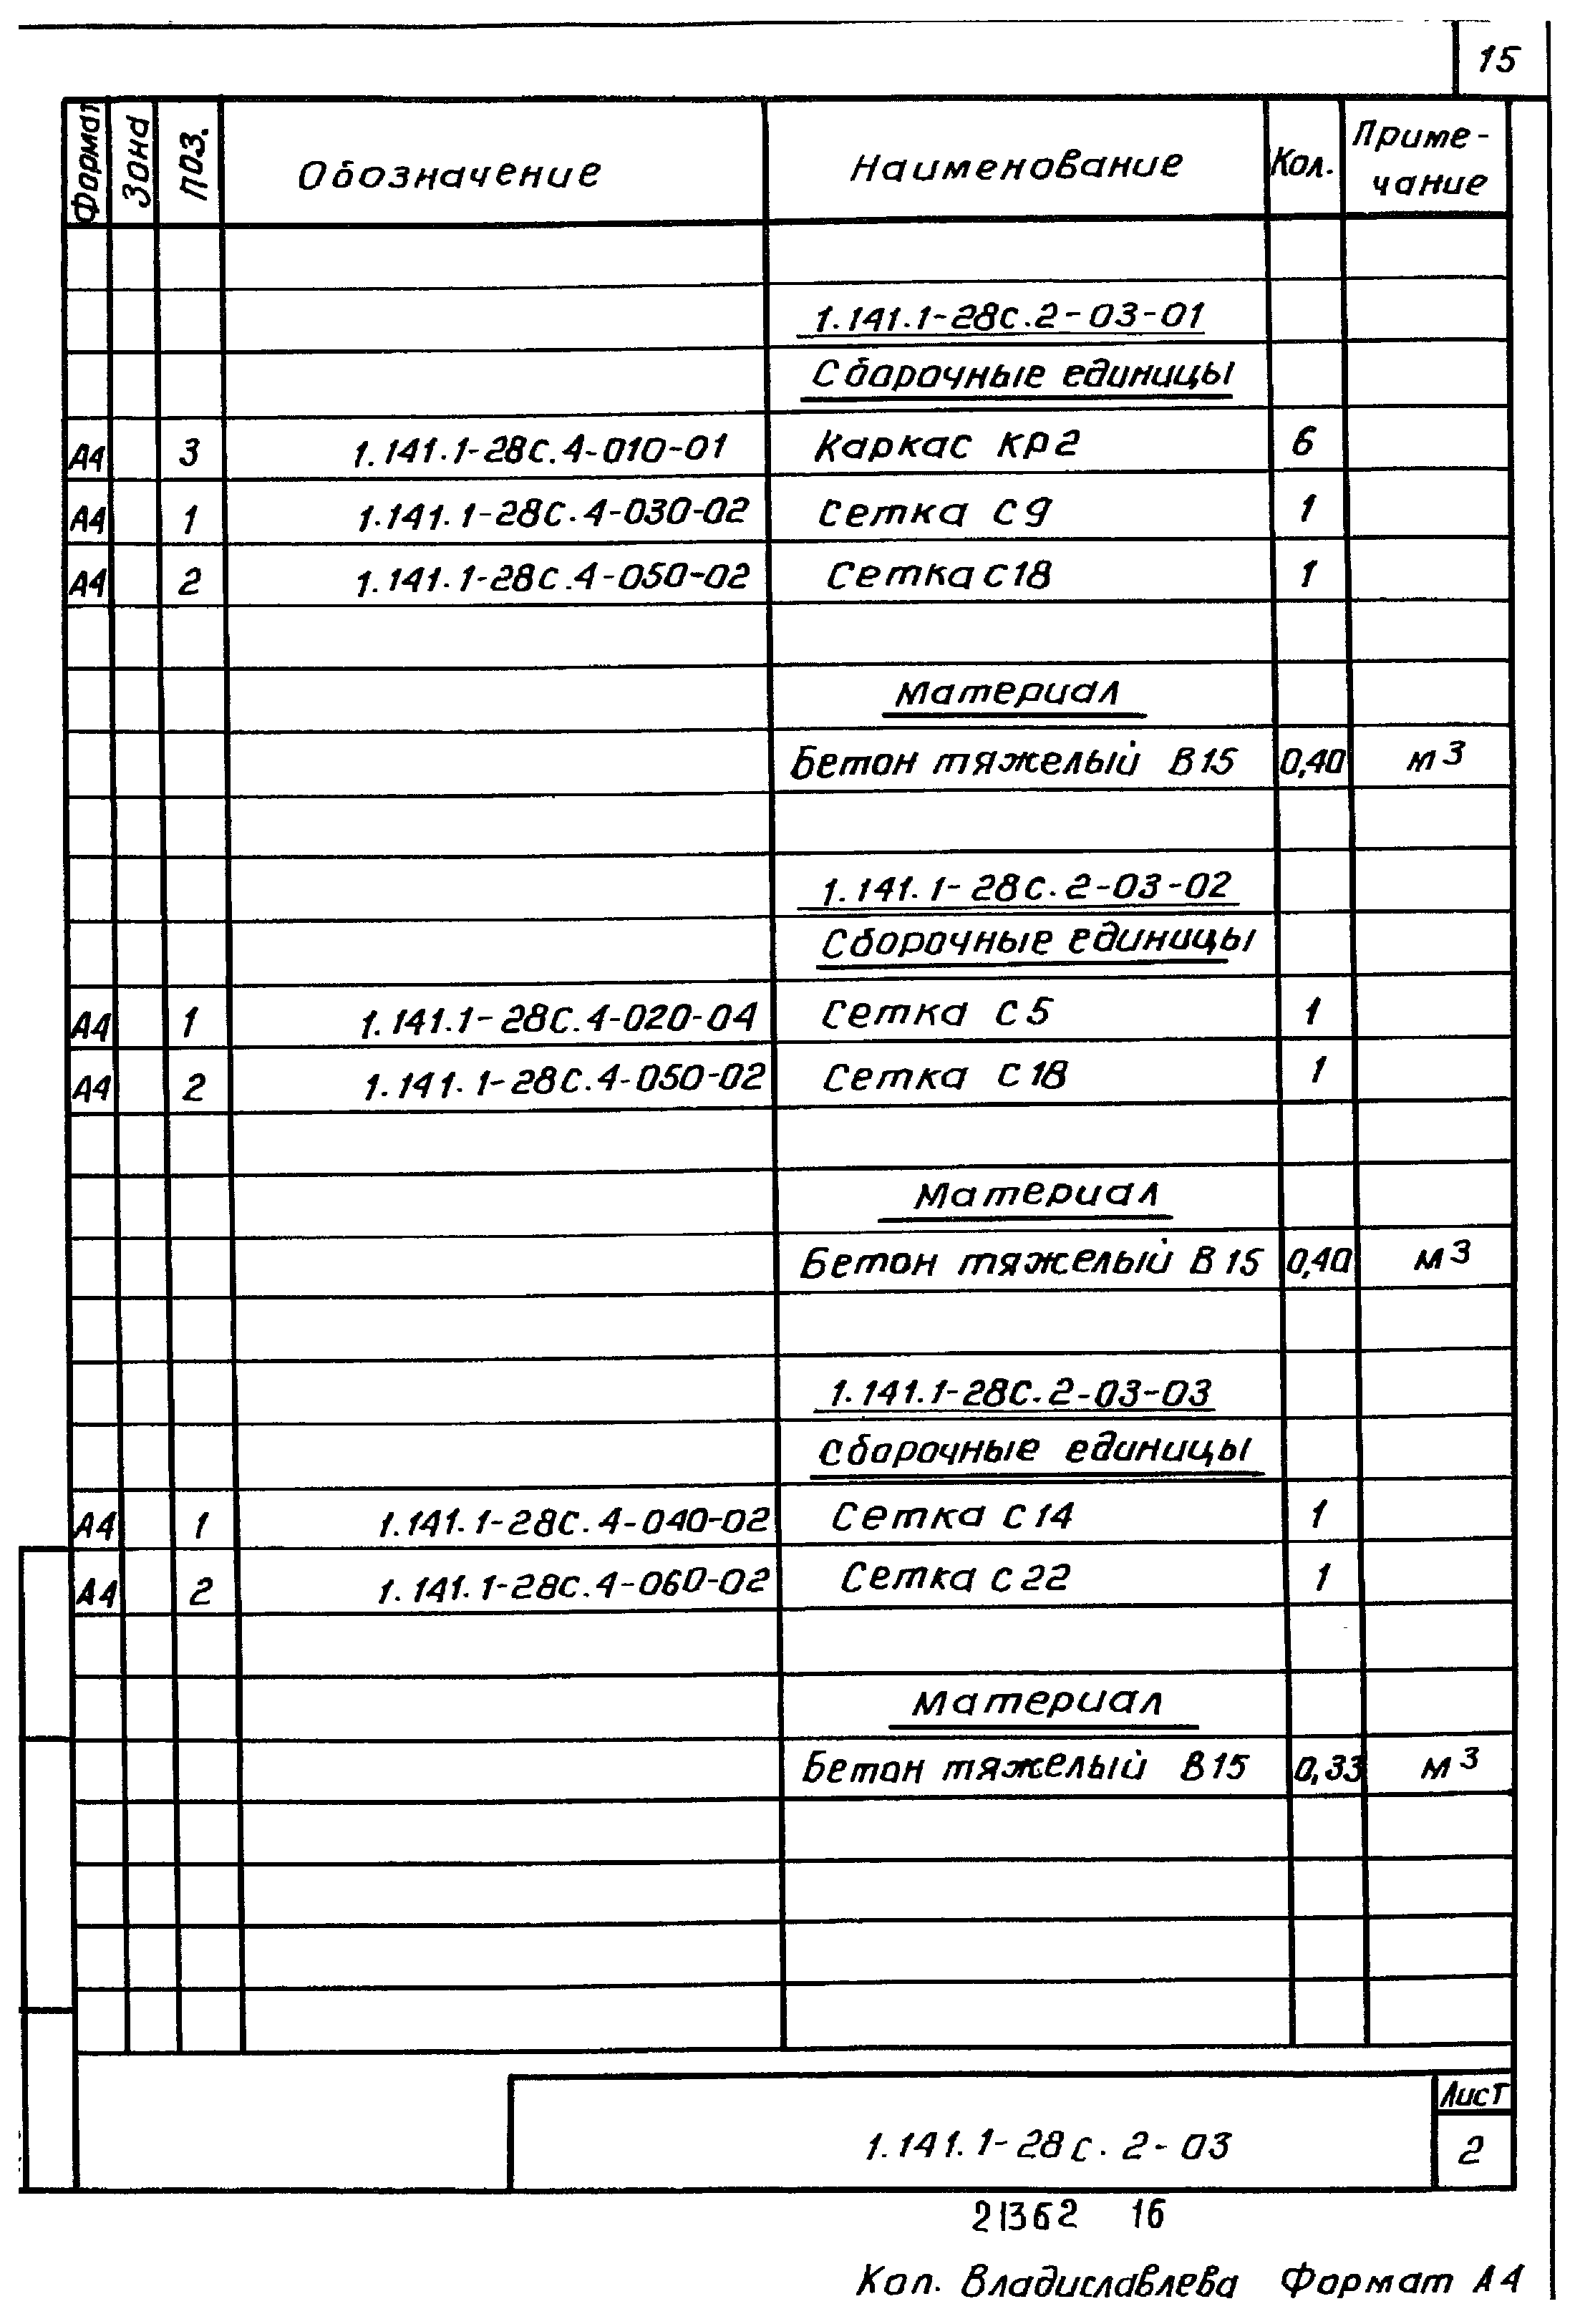 15
Формат Зона Поз. Обозначение Наименование Кол. Приме-
чание
1.141.1-28с.2-03-01
Сборочные единицы
А4 3 1.141.1-28с.4-010-01 Каркас кр2 6
А4 1 1.141.1-28с.4-030-02 Сетка с9 1
А4 2 1.141.1-28с.4-050-02 Сетка с18 1
Материал
Бетон тяжелый В15 0,40 м3
1.141.1-28с.2-03-02
Сборочные единицы
А4 1 1.141.1-28с.4-020-04 Сетка с5 1
А4 2 1.141.1-28с.4-050-02 Сетка с18 1
Материал
Бетон тяжелый В15 0,40 м3
1.141.1-28с.2-03-03
Сборочные единицы
А4 1 1.141.1-28с.4-040-02 Сетка с14 1
А4 2 1.141.1-28с.4-060-02 Сетка с22 1
Материал
Бетон тяжелый В15 0,33 м3
1.141.1-28с.2-03
Лист
2
21362 16
Коп. Владиславлева Формат А4